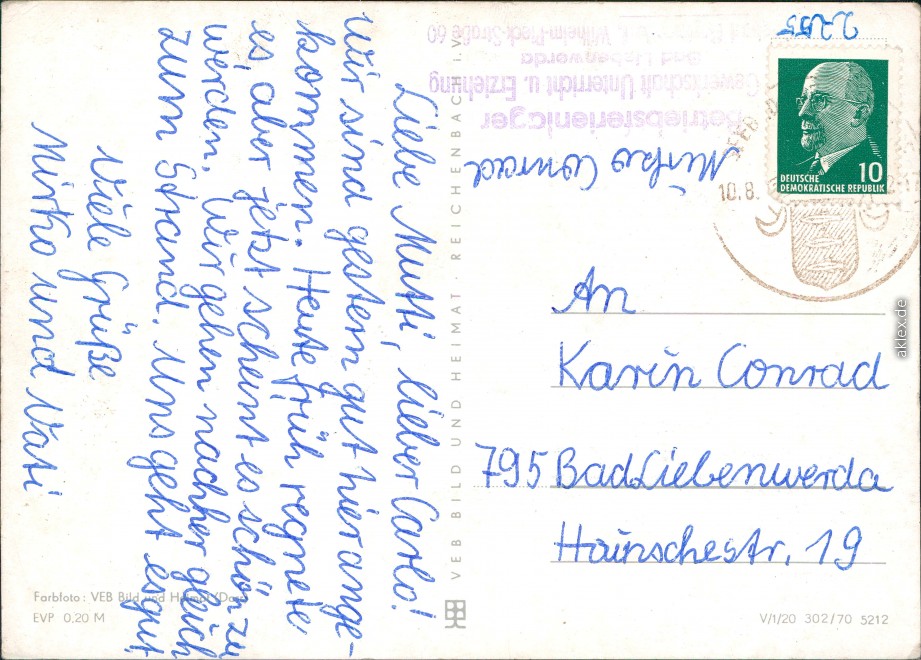 Liebe Mutti, lieber Carlo!
Wir sind gestern gut hier ange-
kommen. Heute früh regnete
es, aber jetzt scheint es schön zu
werden. Wir gehen nacher gleich
zum Strand. Uns geht es gut
Viele Grüße
Mirko und Vati
2255
Mirko Conrad
Betriebsferienlager
Gewerkschaft Unterricht u. Erziehung
Bad Liebenwerda
Wilhelm-Pieck-Straße 60
10.8.
10
DEUTSCHE
DEMOKRATISCHE REPUBLIK
An
Karin Conrad
795 Bad Liebenwerda
Hainschestr. 19
VEB BILD UND HEIMAT REICHENBACH I. V.
Farbfoto: VEB Bild und Heimat
EVP 0.20 M
V/1/20 302/70 5212
aklex.de